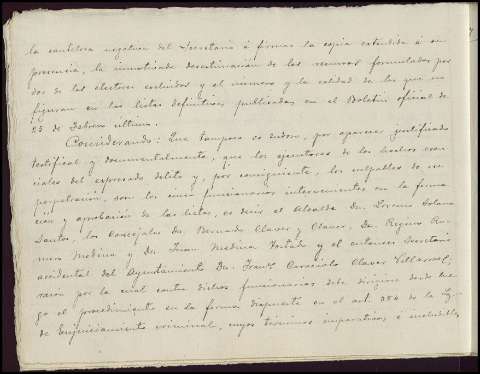 la cautelosa negativa del Secretario á firmar la copia extendida á su
presencia, la inmotivada desestimación de los recursos formulados por
dos de los electores excluidos y el número y la calidad de los que no
figuran en las listas definitivas publicadas en el Boletin oficial de
25 de Febrero último.
Considerando: Que tampoco es dudoso, por aparecer justificado
testifical y documentalmente, que los ejecutores de los hechos esen-
ciales del expresado delito y, por consiguiente, los culpables de su
perpetración, son los cinco funcionarios intervinientes en la forma-
ción y aprobación de las listas, es decir el Alcalde Dn. Lorenzo Solana
Santos, los Concejales Dn. Bernardo Claver y Claver, Dn. Regino Ro-
mero Medina y Dn. Juan Medina Hortado y el entonces Secretario
accidental del Ayuntamiento Dn. Franco. Caraciolo Claver Villarreal;
razón por la cual contra dichos funcionarios debe dirigirse desde lue-
go el procedimiento en la forma dispuesta en el art. 384 de la Ley
de Enjuiciamiento criminal, cuyos términos imperativos é ineludibles